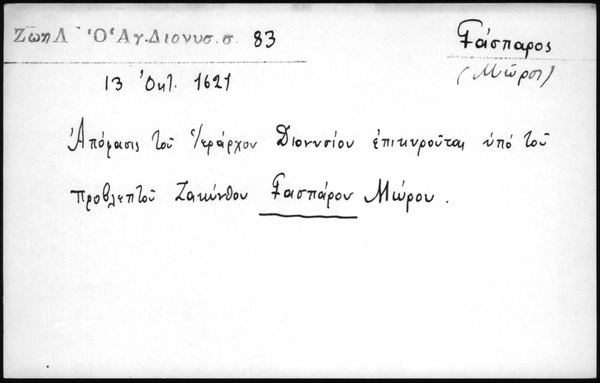 Ζώη Λ Ὁ Ἅγ. Διονυσ. σ. 83 Γάσπαρος
(Μῶρος)
13 Ὀκτ. 1621
Ἀπόφασις τοῦ Ἱεράρχου Διονυσίου ἐπικυροῦται ὑπό τοῦ
προβλεπτοῦ Ζακύνθου Γασπάρου Μώρου.